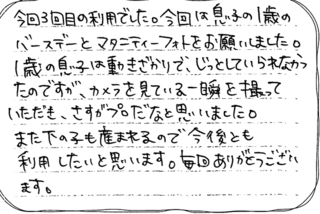 今回3回目の利用でした。今回は息子の1歳の
バースデーとマタニティーフォトをお願いしました。
1歳の息子は動きざかりで、じっとしていられなかっ
たのですが、カメラを見ている一瞬を撮って
いただき、さすがプロだなと思いました。
また下の子も産まれるので今後とも
利用したいと思います。毎回ありがとうござい
ます。